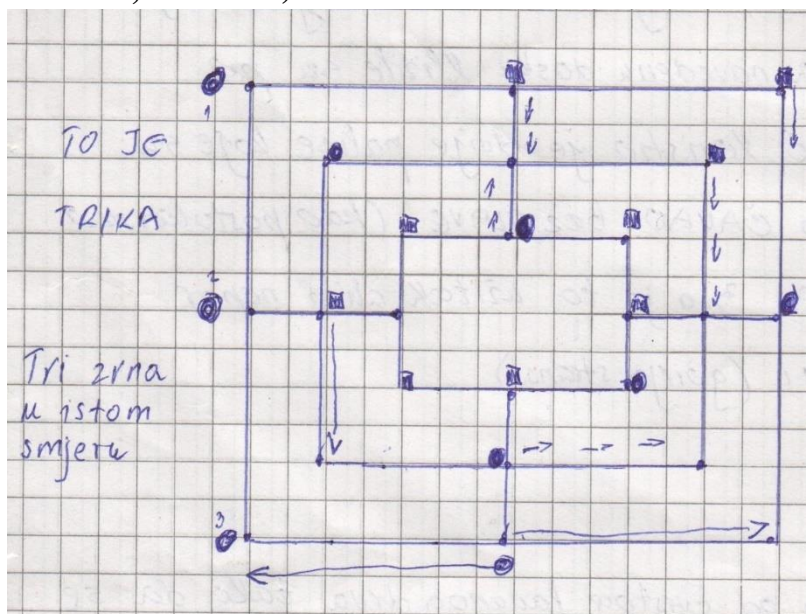 1
TO JE
TRIKA
2
Tri zrna
u istom
smjeru
3